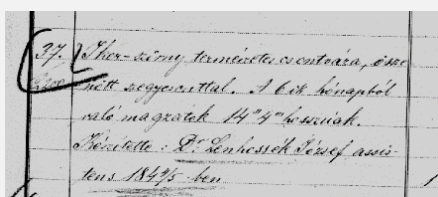 37. Iker-szörny természetes csontvára, össze
nőtt szegycsonttal. A 6ik hónapból
való magzatok 14" 4''' hosszúak.
Készítette: Dr Lenhossék József assis-
tens 1844/5-ben.